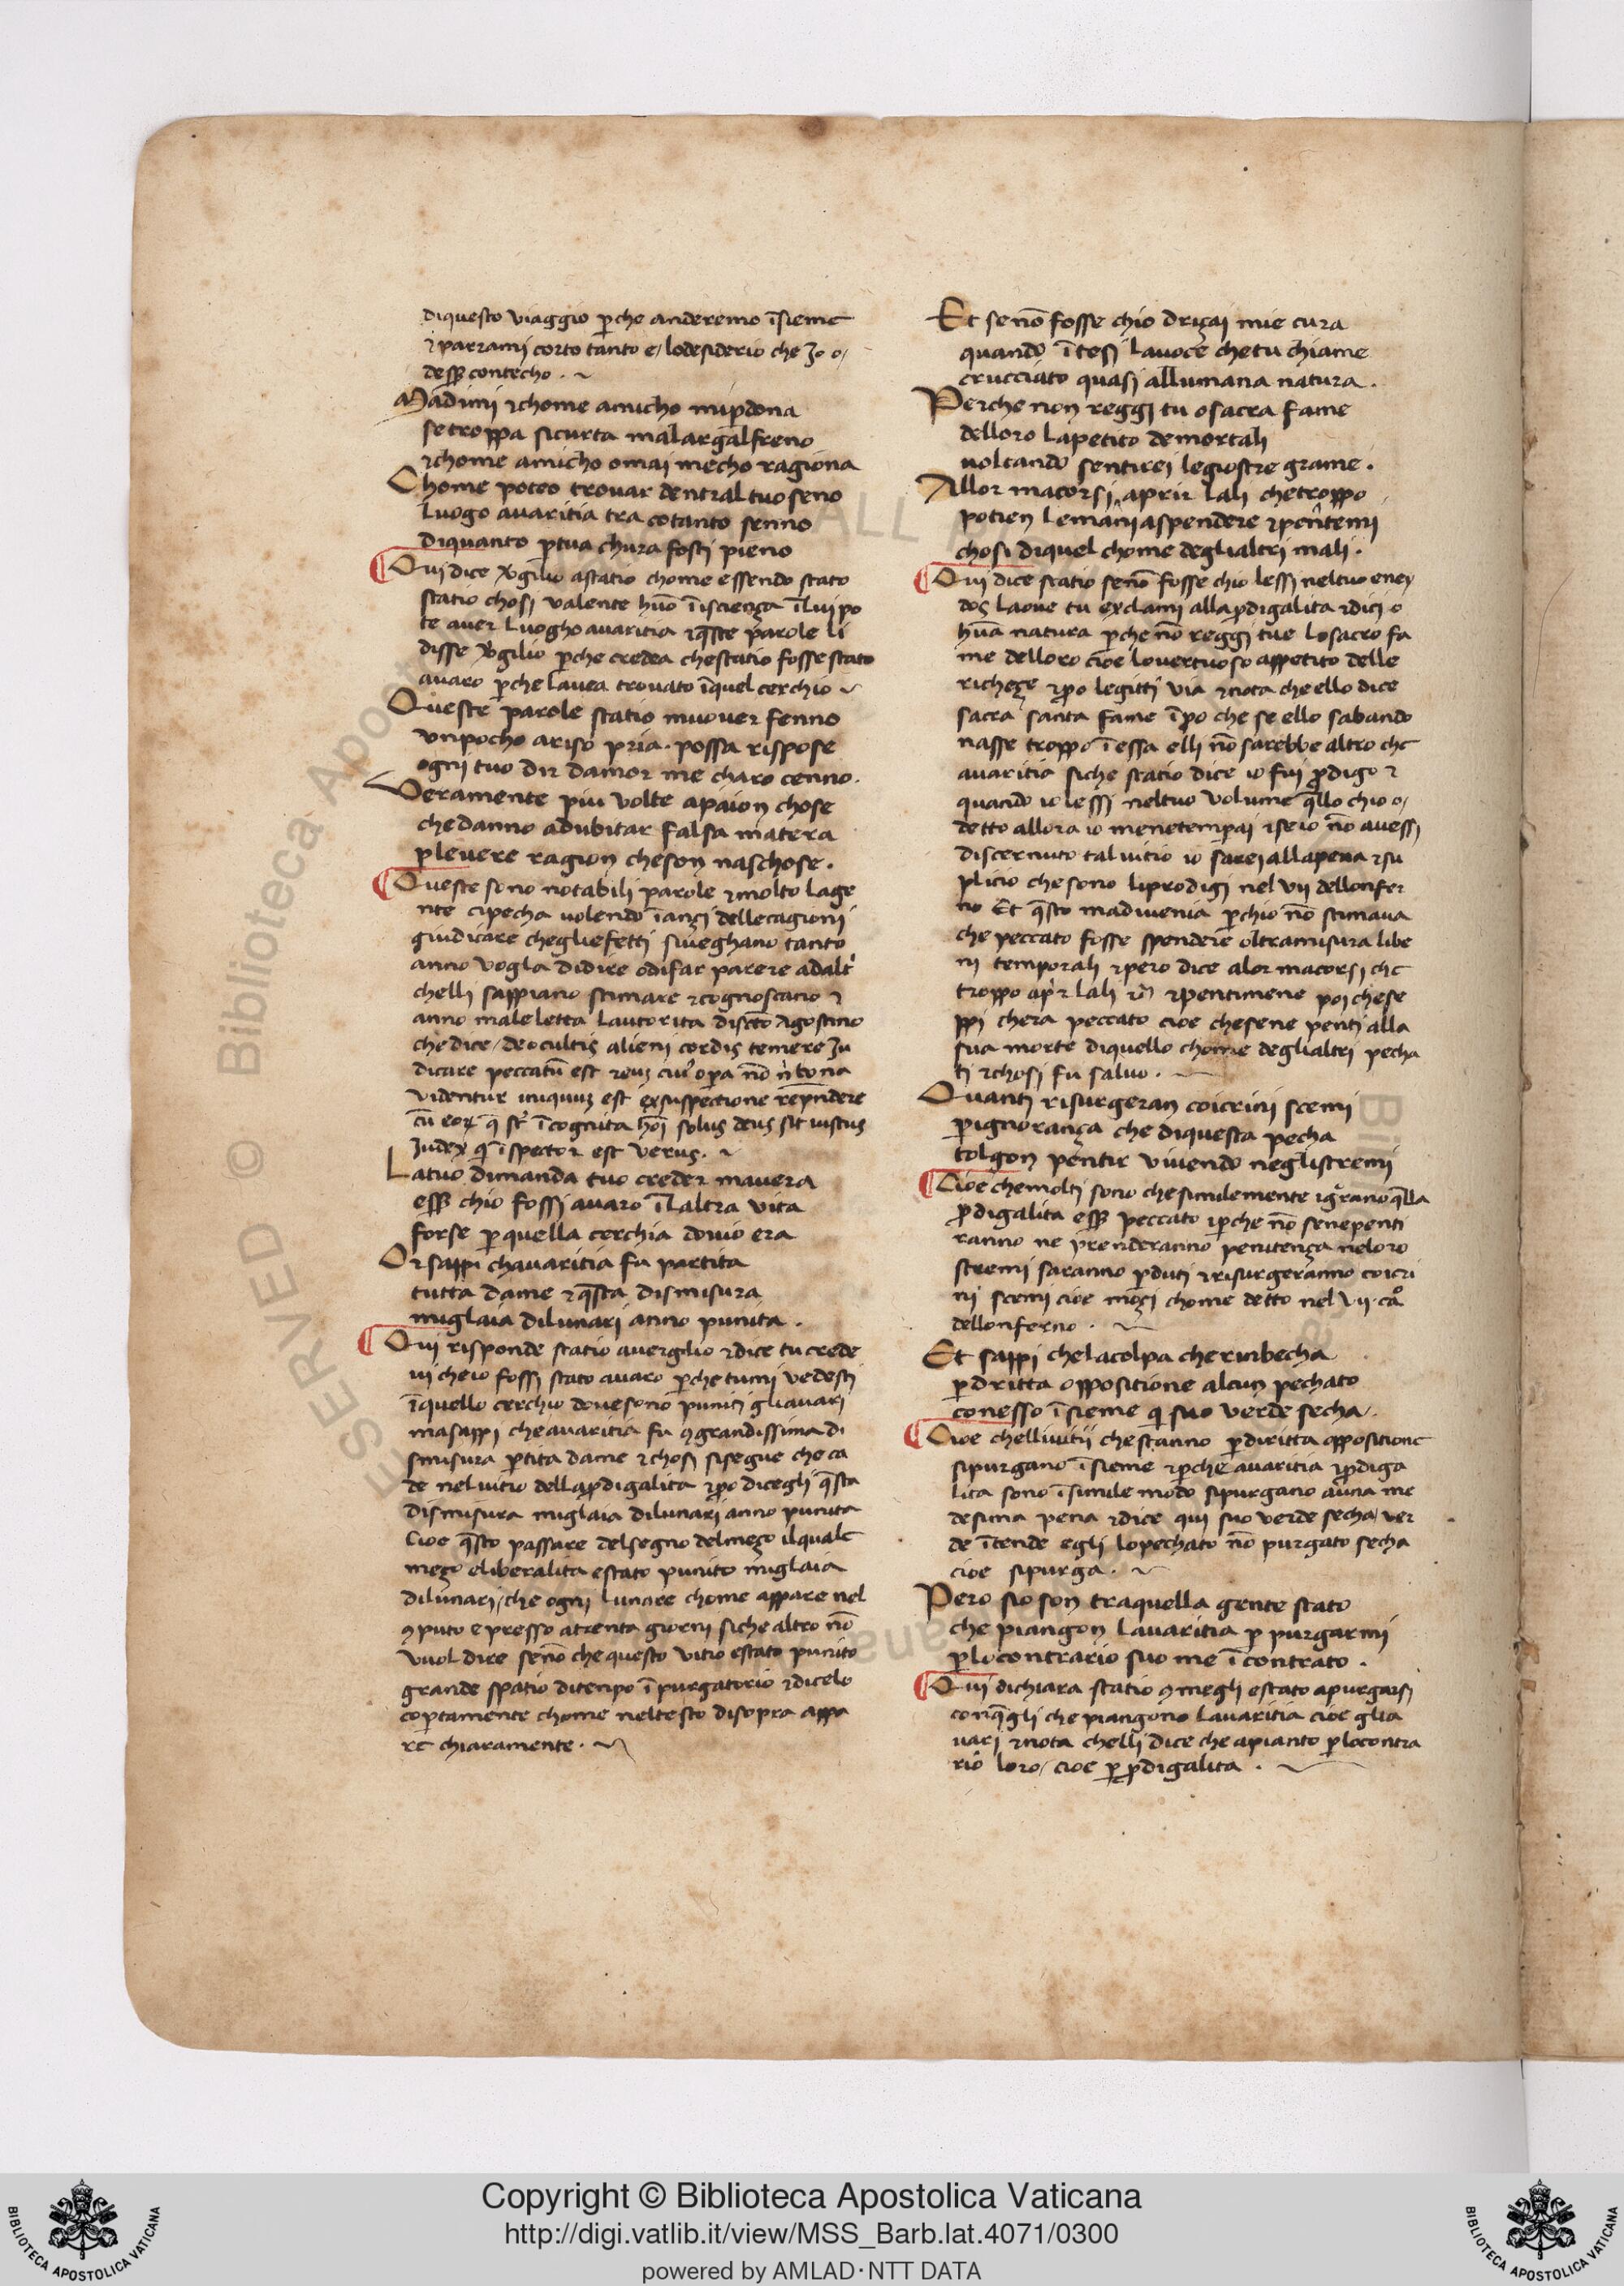 diquesto viaggio p̱che anderemo ĩsieme
⁊ parrami corto tanto e/ lodesiderio che Jo o/
dess̱ contecho . ~
Madimi ⁊chome amicho mip̱dona
setroppa sicurta malargalfreno
⁊chome amicho omai mecho ragiona
Chome poteo trovar dentraltuo seno
Luogo avaritia tra cotanto senno
diquanto p̱ tua chura fosti pieno
Qui dice v̾gilio astatio chome essendo stato
statio chosi valente huõ ĩ iscienza ĩ lui po
te aver Luogho avaritia ⁊q̃ste parole li
disse v̾gilio p̱che credea chestatio fosse stato
avaro p̱che lavea trovato ĩquel cerchio ~
Queste parole statio muover fenno
vnpocho ariso pria . possa rispose
ogni tuo dir damor me charo cenno .
Veramente piu volte apaion chose
chedanno adubitar falsa matera
p̱ levere ragion cheson naschose .
Queste sono notabili parole ⁊molto lage
nte cipecha volendo ĩanzi dellecagioni
giudicare chegliefetti siveghano tanto
anno vogla didire odifar parere adalt̾
chelli sappiano stimare ⁊cognoscano ⁊
anno male letta lautorita discto Agostino
chedice / deocultis alieni cordis temere Ju
dicare peccatũ est ⁊eus cui᾽ oꝑa nõ n̾ bona
videntur iniquuz est exsuspectione rep̱ndere
cũ eoꝝ q̃ sr̃ ĩcognita hoĩ solus deus sit iustus
Judex q̃ ĩspector est verus . ~
Latuo dimanda tuo creder mavera
ess̱ chio fossi avaro ĩ laltra vita
forse p̱ quella cerchia dovio era
Or sappi chavaritia fu partita
tutta dame ⁊q̃sta dismisura
miglaia dilunari anno punita .
Qui risponde statio avergilio ⁊dice tu crede
vi cheio fossi stato avaro p̱che tumi vedesti
ĩquello cerchio dovesono puniti gliavari
masappi cheavaritia fu ꝯgrandissima di
smisura p̱tita dame ⁊chosi sisegue che ca
de nelvitio dellap̱digalita ⁊p̱o dicegli q̃sta
dismisura miglaia dilunari anno punita
Cioe q̃sto passare delsegno delmezo ilquale
mezo eliberalita estato punito miglaia
dilunari / che ogni lunare chome appare nel
ꝯputo e presso atrenta giorni siche altro nõ
vuol dire senõ che questo vitio estato punito
grande spatio ditempo ĩ purgatorio ⁊dicelo
cop̱tamente chome neltesto disopra appa
re chiaramente . ~
Et senõ fosse chio drizai mie cura
quando ĩtesi lavoce chetu chiame
crucciato quasi allumana natura .
Perche non reggi tu o sacra fame
delloro lapetito demortali
voltando sentirei legiostre grame .
Allor macorsi aprir lali chetroppo
potien lemani aspendere ⁊pẽntemi
chosi diquel chome deglialtri mali .
Qui dice statio senõ fosse chio lessi neltuo eney
dos laove tu exclami allap̱digalita ⁊dici o
huã natura p̱che nõ reggi tue losacro fa
me delloro cioe lovertuoso appetito delle
richeze ⁊p̱o legitti via ⁊nota che ello dice
sacra santa fame ĩp̱o che se ello sabando
nasse troppo ĩ essa elli nõ sarebbe altro che
avaritia siche statio dice io fui p̱digo ⁊
quando io lessi neltuo volume q̃llo chio o/
detto allora io menetempai ⁊seio nõ avessi
discernuto tal vitio io sarei allapena ⁊su
plicio che sono liprodigi nel vii dellonfer
no Et q̃sto madivenia p̱chio nõ stimava
che peccato fosse spendere oltramisura libe
ni temporali ⁊pero dice alor macorsi che
troppo ap̾r lali ⁊c̃ ⁊pentimene poi chese
ppi chera peccato cioe chesene penti alla
sua morte diquello chome deglialtri pecha
ti ⁊chosi fu salvo .
Quanti risurgeran coicrini scemi
p̱ignoranza che diquesta pecha
tolgon pentir vivendo neglistremi
Cioe chemolti sono chesimilemente igrãno q̃lla
p̱digalita ess̱ peccato ⁊p̱che nõ senepenti
ranno ne prenderanno penitenza neloro
stremi saranno p̱duti ⁊risurgeranno coicri
ni scemi cioe mozi chome detto nel vii cãº
dellonferno .
Et sappi chelacolpa cherimbecha
p̱ dritta oppositione alcun pechato
conesso ĩsieme q̃ suo verde secha .
Cioe chellivitii chestanno p̱ diritta oppositione
sipurgano ĩsieme ⁊p̱che avaritia ⁊p̱diga
lita sono ĩ simile modo sipurgano auna me
desima pena ⁊dice qui suo verde secha / ver
de ĩtende egli lopechato nõ purgato secha
cioe sipurga . ~
Pero sio son traquella gente stato
che piangon lavaritia p̱ purgarmi
p̱ lo contrario suo me ĩcontrato .
Qui dichiara statio ꝯmegli estato apurgarsi
conq̃gli che piangono lavaritia cioe glia
vari ⁊nota chelli dice che apianto p̱ locontra
rio loro / cioe p̱ p̱digalita .
Copyright © Biblioteca Apostolica Vaticana
http://digi.vatlib.it/view/MSS_Barb.lat.4071/0300
powered by AMLAD·NTT DATA
BIBLIOTECA APOSTOLICA VATICANA
BIBLIOTECA APOSTOLICA VATICANA